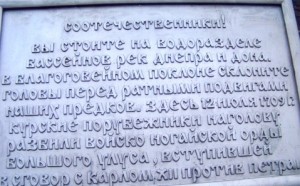 СООТЕЧЕСТВЕННИКИ!
ВЫ СТОИТЕ НА ВОДОРАЗДЕЛЕ
БАССЕЙНОВ РЕК ДНЕПРА И ДОНА.
В БЛАГОГОВЕЙНОМ ПОКЛОНЕ СКЛОНИТЕ
ГОЛОВЫ ПЕРЕД РАТНЫМИ ПОДВИГАМИ
НАШИХ ПРЕДКОВ. ЗДЕСЬ 12 ИЮЛЯ 1709 Г.
КУРСКИЕ ПОРУБЕЖНИКИ НАГОЛОВУ
РАЗБИЛИ ВОЙСКО НОГАЙСКОЙ ОРДЫ
БОЛЬШОГО УЛУСА, ВСТУПИВШЕЙ
В СГОВОР С КАРЛОМ XII ПРОТИВ ПЕТРА